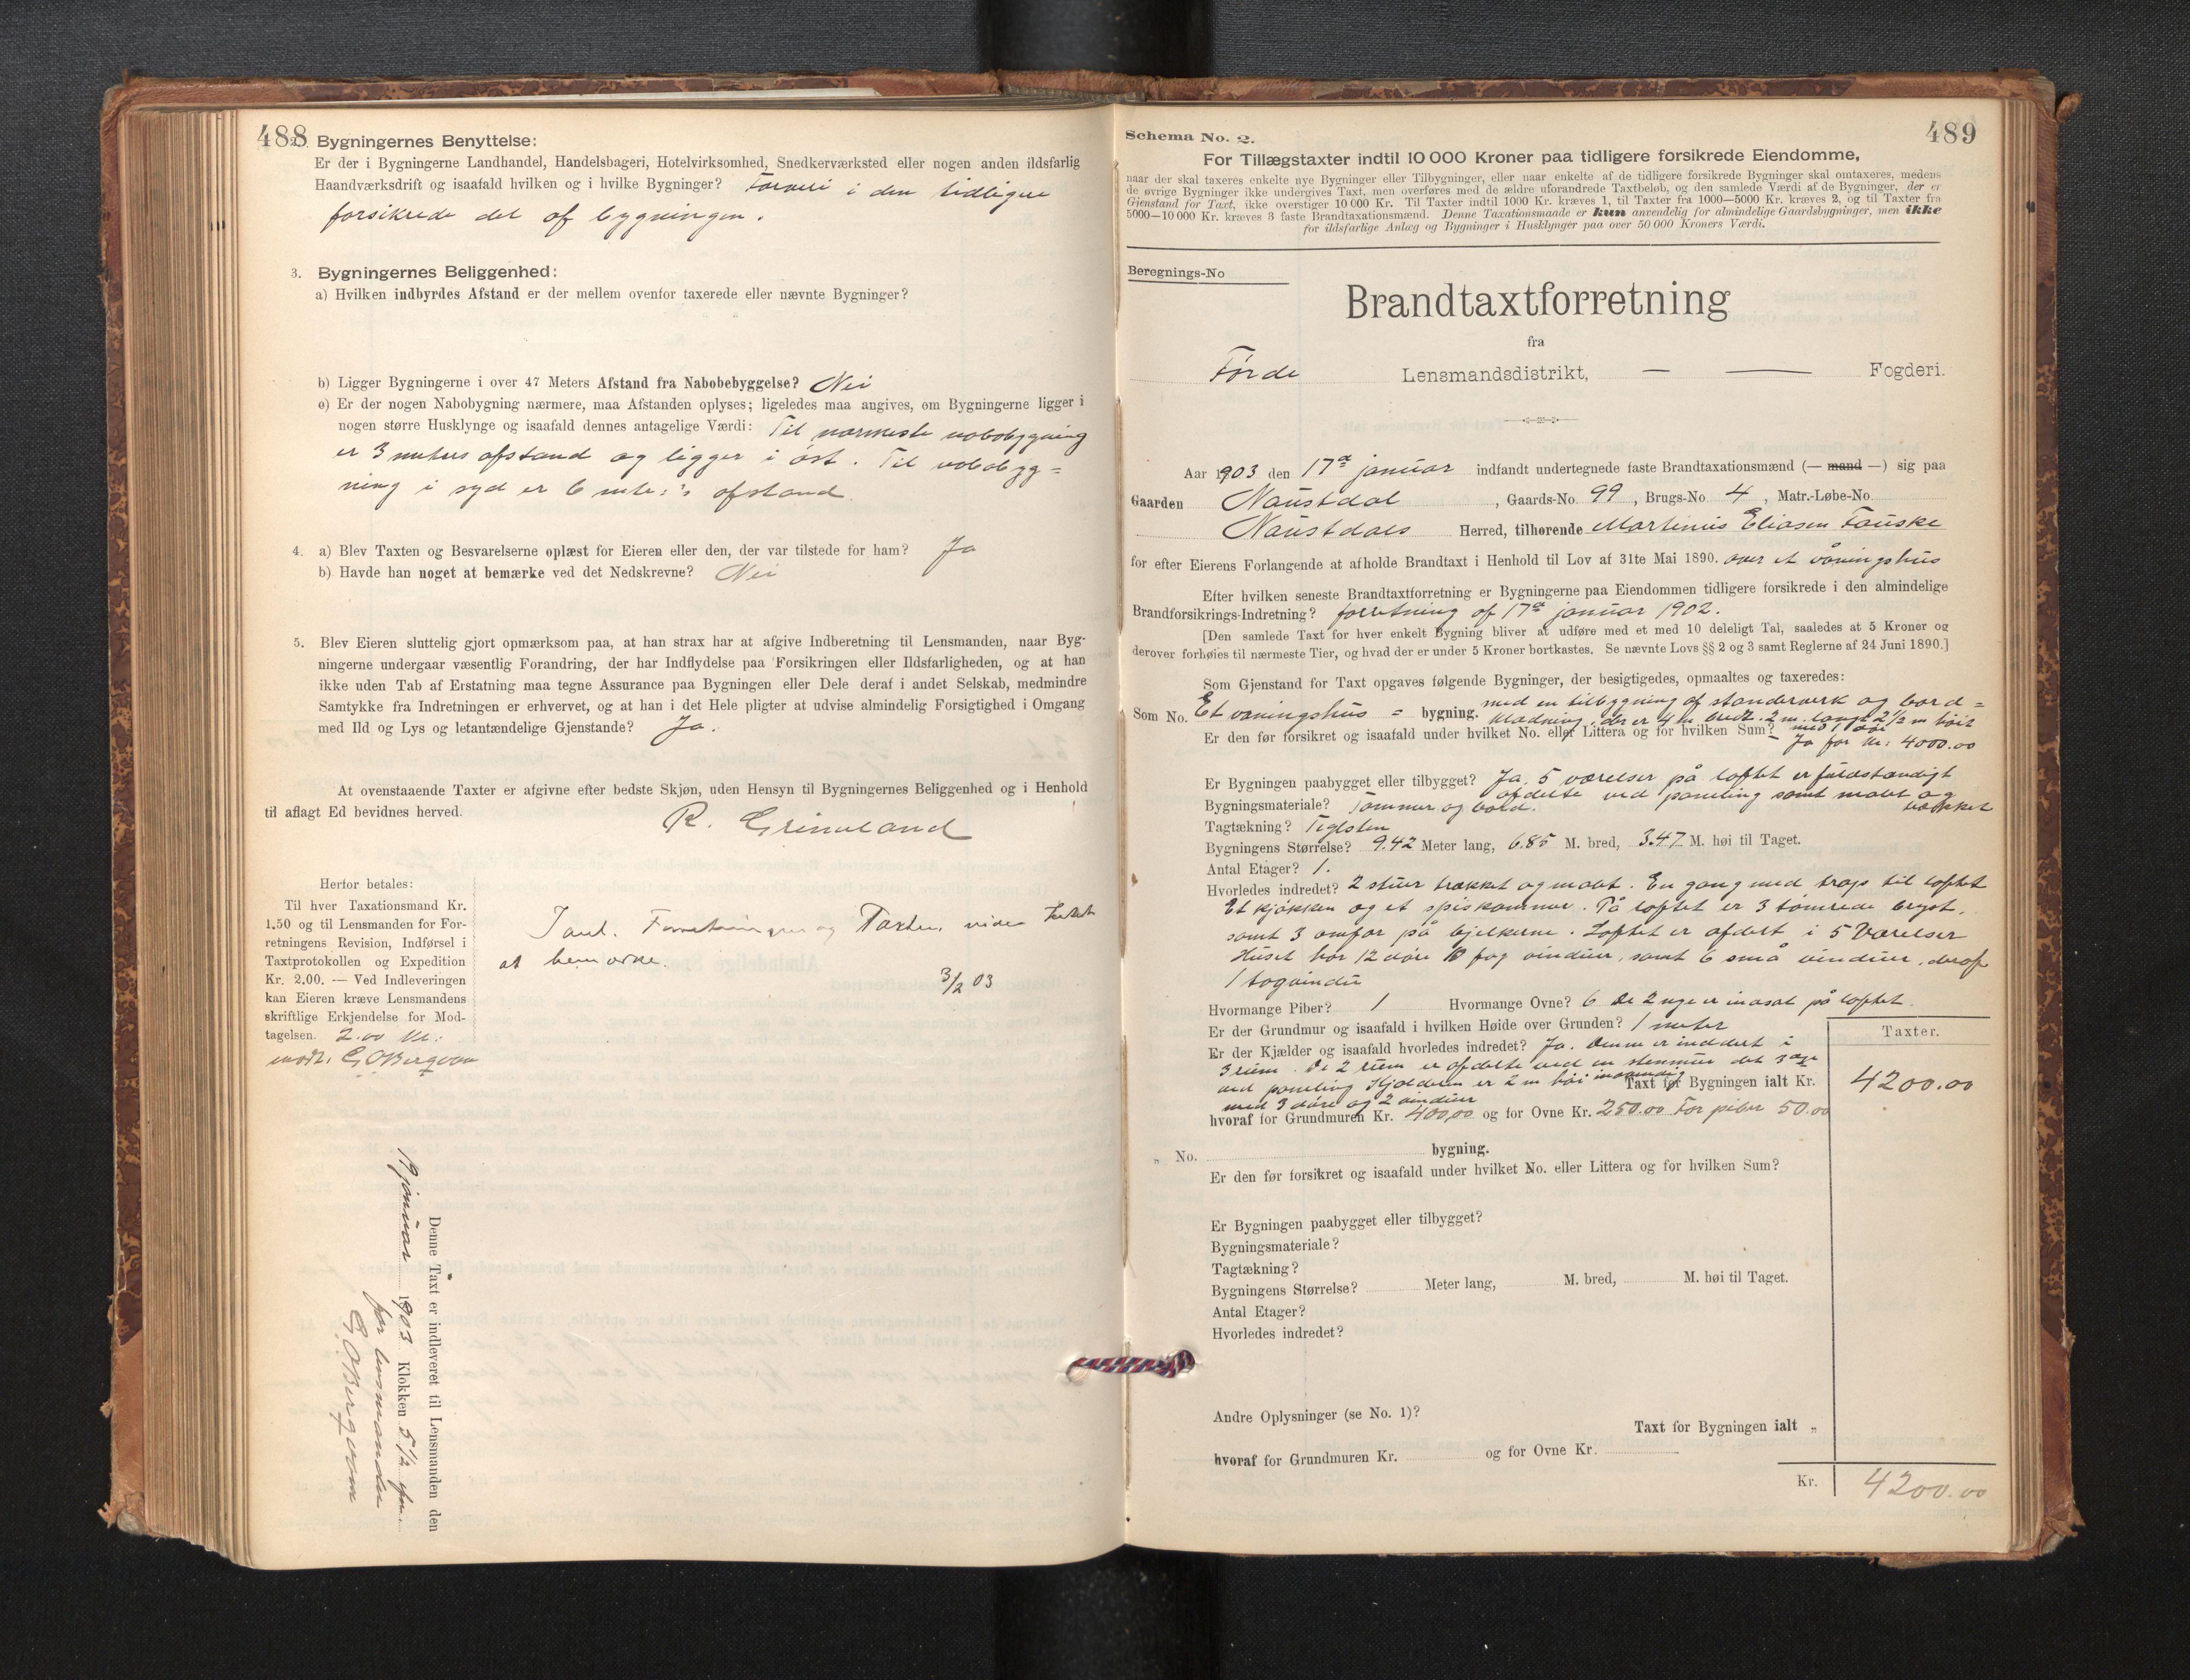 488
2. Bygningernes Benyttelse:
Er der i Bygningerne Landhandel, Handelsbageri, Hotelvirksomhed, Snedkerværksted eller nogen anden ildsfarlig
Haandværksdrift og isaafald hvilken og i hvilke Bygninger? Farveri i den tidligere
forsikrede del af bygningen.
3. Bygningernes Beliggenhed:
a) Hvilken indbyrdes Afstand er der mellem ovenfor taxerede eller nævnte Bygninger?
b) Ligger Bygningerne i over 47 Meters Afstand fra Nabobebyggelse? Nei
c) Er der nogen Nabobygning nærmere, maa Afstanden oplyses; ligeledes maa angives, om Bygningerne ligger i
nogen større Husklynge og isaafald dennes antagelige Værdi: Til nærmeste nabobygning
er 3 meters afstand og ligger i øst. Til nabobyg=
ning i syd er 6 afstand.
4. a) Blev Taxten og Besvarelserne oplæst for Eieren eller den, der var tilstede for ham? Ja
b) Havde han noget at bemærke ved det Nedskrevne? Nei
5. Blev Eieren sluttelig gjort opmærksom paa, at han strax har at afgive Indberetning til Lensmanden, naar Byg-
ningerne undergaar væsentlig Forandring, der har Indflydelse paa Forsikringen eller Ildsfarligheden, og at han
ikke uden Tab af Erstatning maa tegne Assurance paa Bygningen eller Dele deraf i andet Selskab, medmindre
Samtykke fra Indretningen er erhvervet, og at han i det Hele pligter at udvise almindelig Forsigtighed i Omgang
med Ild og Lys og letantændelige Gjenstande? Ja.
At ovenstaaende Taxter er afgivne efter bedste Skjøn, uden Hensyn til Bygningernes Beliggenhed og i Henhold
til aflagt Ed bevidnes herved.
R. Grimeland
Herfor betales:
Til hver Taxationsmand Kr.
1.50 og til Lensmanden for For-
retningens Revision, Indførsel i
Taxtprotokollen og Expedition
Kr. 2.00. — Ved Indleveringen
kan Eieren kræve Lensmandens
skriftlige Erkjendelse for Mod-
tagelsen. 2.00 Kr:
modt.
Forretningen og Taxten, intet
at bemærke.
3/2 03
Denne Taxt er indleveret til Lensmanden den
19 januar 1903 Klokken 5 1/2
for lensmanden
Schema No. 2.
489
For Tillægstaxter indtil 10 000 Kroner paa tidligere forsikrede Eiendomme,
naar der skal taxeres enkelte nye Bygninger eller Tilbygninger, eller naar enkelte af de tidligere forsikrede Bygninger skal omtaxeres, medens
de øvrige Bygninger ikke undergives Taxt, men overføres med de ældre uforandrede Taxtbeløb, og den samlede Værdi af de Bygninger, der er
Gjenstand for Taxt, ikke overstiger 10 000 Kr. Til Taxter indtil 1000 Kr. kræves 1, til Taxter fra 1000—5000 Kr. kræves 2, og til Taxter fra
5000—10 000 Kr. kræves 3 faste Brandtaxationsmænd. Denne Taxationsmaade er kun anvendelig for almindelige Gaardsbygninger, men ikke
for ildsfarlige Anlæg og Bygninger i Husklynger paa over 50 000 Kroners Værdi.
Beregnings-No
Brandtaxtforretning
fra
Førde Lensmandsdistrikt, — — Fogderi.
Aar 1903 den 17de januar indfandt undertegnede faste Brandtaxationsmænd (— mand —) sig paa
Gaarden Naustdal, Gaards-No. 99, Brugs-No. 4, Matr.-Løbe-No.
Naustdals Herred, tilhørende Martinus Eliasen Fauske
for efter Eierens Forlangende at afholde Brandtaxt i Henhold til Lov af 31te Mai 1890. over et våningshus
Efter hvilken seneste Brandtaxtforretning er Bygningerne paa Eiendommen tidligere forsikrede i den almindelige
Brandforsikrings-Indretning? forretning af 17de januar 1902.
[Den samlede Taxt for hver enkelt Bygning bliver at udføre med et med 10 deleligt Tal, saaledes at 5 Kroner og
derover forhøies til nærmeste Tier, og hvad der er under 5 Kroner bortkastes. Se nævnte Lovs §§ 2 og 3 samt Reglerne af 24 Juni 1890.]
Som Gjenstand for Taxt opgaves følgende Bygninger, der besigtigedes, opmaaltes og taxeredes:
Som No. Et våningshus = bygning. med en tilbygning af standerverk og bord=
klædning, der er 4 m bred. 2 m. langt 2 1/2 m høit
med 1 dør
Er den før forsikret og isaafald under hvilket No. eller Littera og for hvilken Sum?
Ja for Kr: 4000.00
Er Bygningen paabygget eller tilbygget? Ja. 5 værelser på loftet er fuldstændigt
afdelte ved paneling samt malet og
trækket
Bygningsmateriale? Tømmer og bord.
Tagtækning? Teglsten
Bygningens Størrelse? 9.42 Meter lang, 6.85 M. bred, 3.47 M. høi til Taget.
Antal Etager? 1.
Hvorledes indredet? 2 stuer trækket og malet. En gang med trap til loftet
Et kjøkken og et spiskammer. På loftet er 3 tømrede bryst,
samt 3 omfar på bjelkerne. Loftet er afdelt i 5 Værelser
Huset har 12 døre 10 fag vinduer, samt 6 små vinduer, deraf
1 tagvindu
Hvormange Piber? 1 Hvormange Ovne? 6 De 2 nye er indsat på loftet.
Er der Grundmur og isaafald i hvilken Høide over Grunden? 1 meter
Er der Kjælder og isaafald hvorledes indredet? Ja. Denne er inddelt i
3 rum. De 2 rum er afdelte ved en stenmur det 3die
ved paneling Kjælderen er 2 m høi indvendig
med 3 døre og 2 vinduer
Taxter.
Taxt for Bygningen ialt Kr. 4200.00
hvoraf for Grundmuren Kr. 400,00 og for Ovne Kr. 250.00 For piber 50.00
„ No. bygning.
Er den før forsikret og isaafald under hvilket No. eller Littera og for hvilken Sum?
Er Bygningen paabygget eller tilbygget?
Bygningsmateriale?
Tagtækning?
Bygningens Størrelse? Meter lang, M. bred, M. høi til Taget.
Antal Etager?
Hvorledes indredet?
Andre Oplysninger (se No. 1)?
Taxt for Bygningen ialt „
hvoraf for Grundmuren Kr. og for Ovne Kr.
Kr. 4200.00